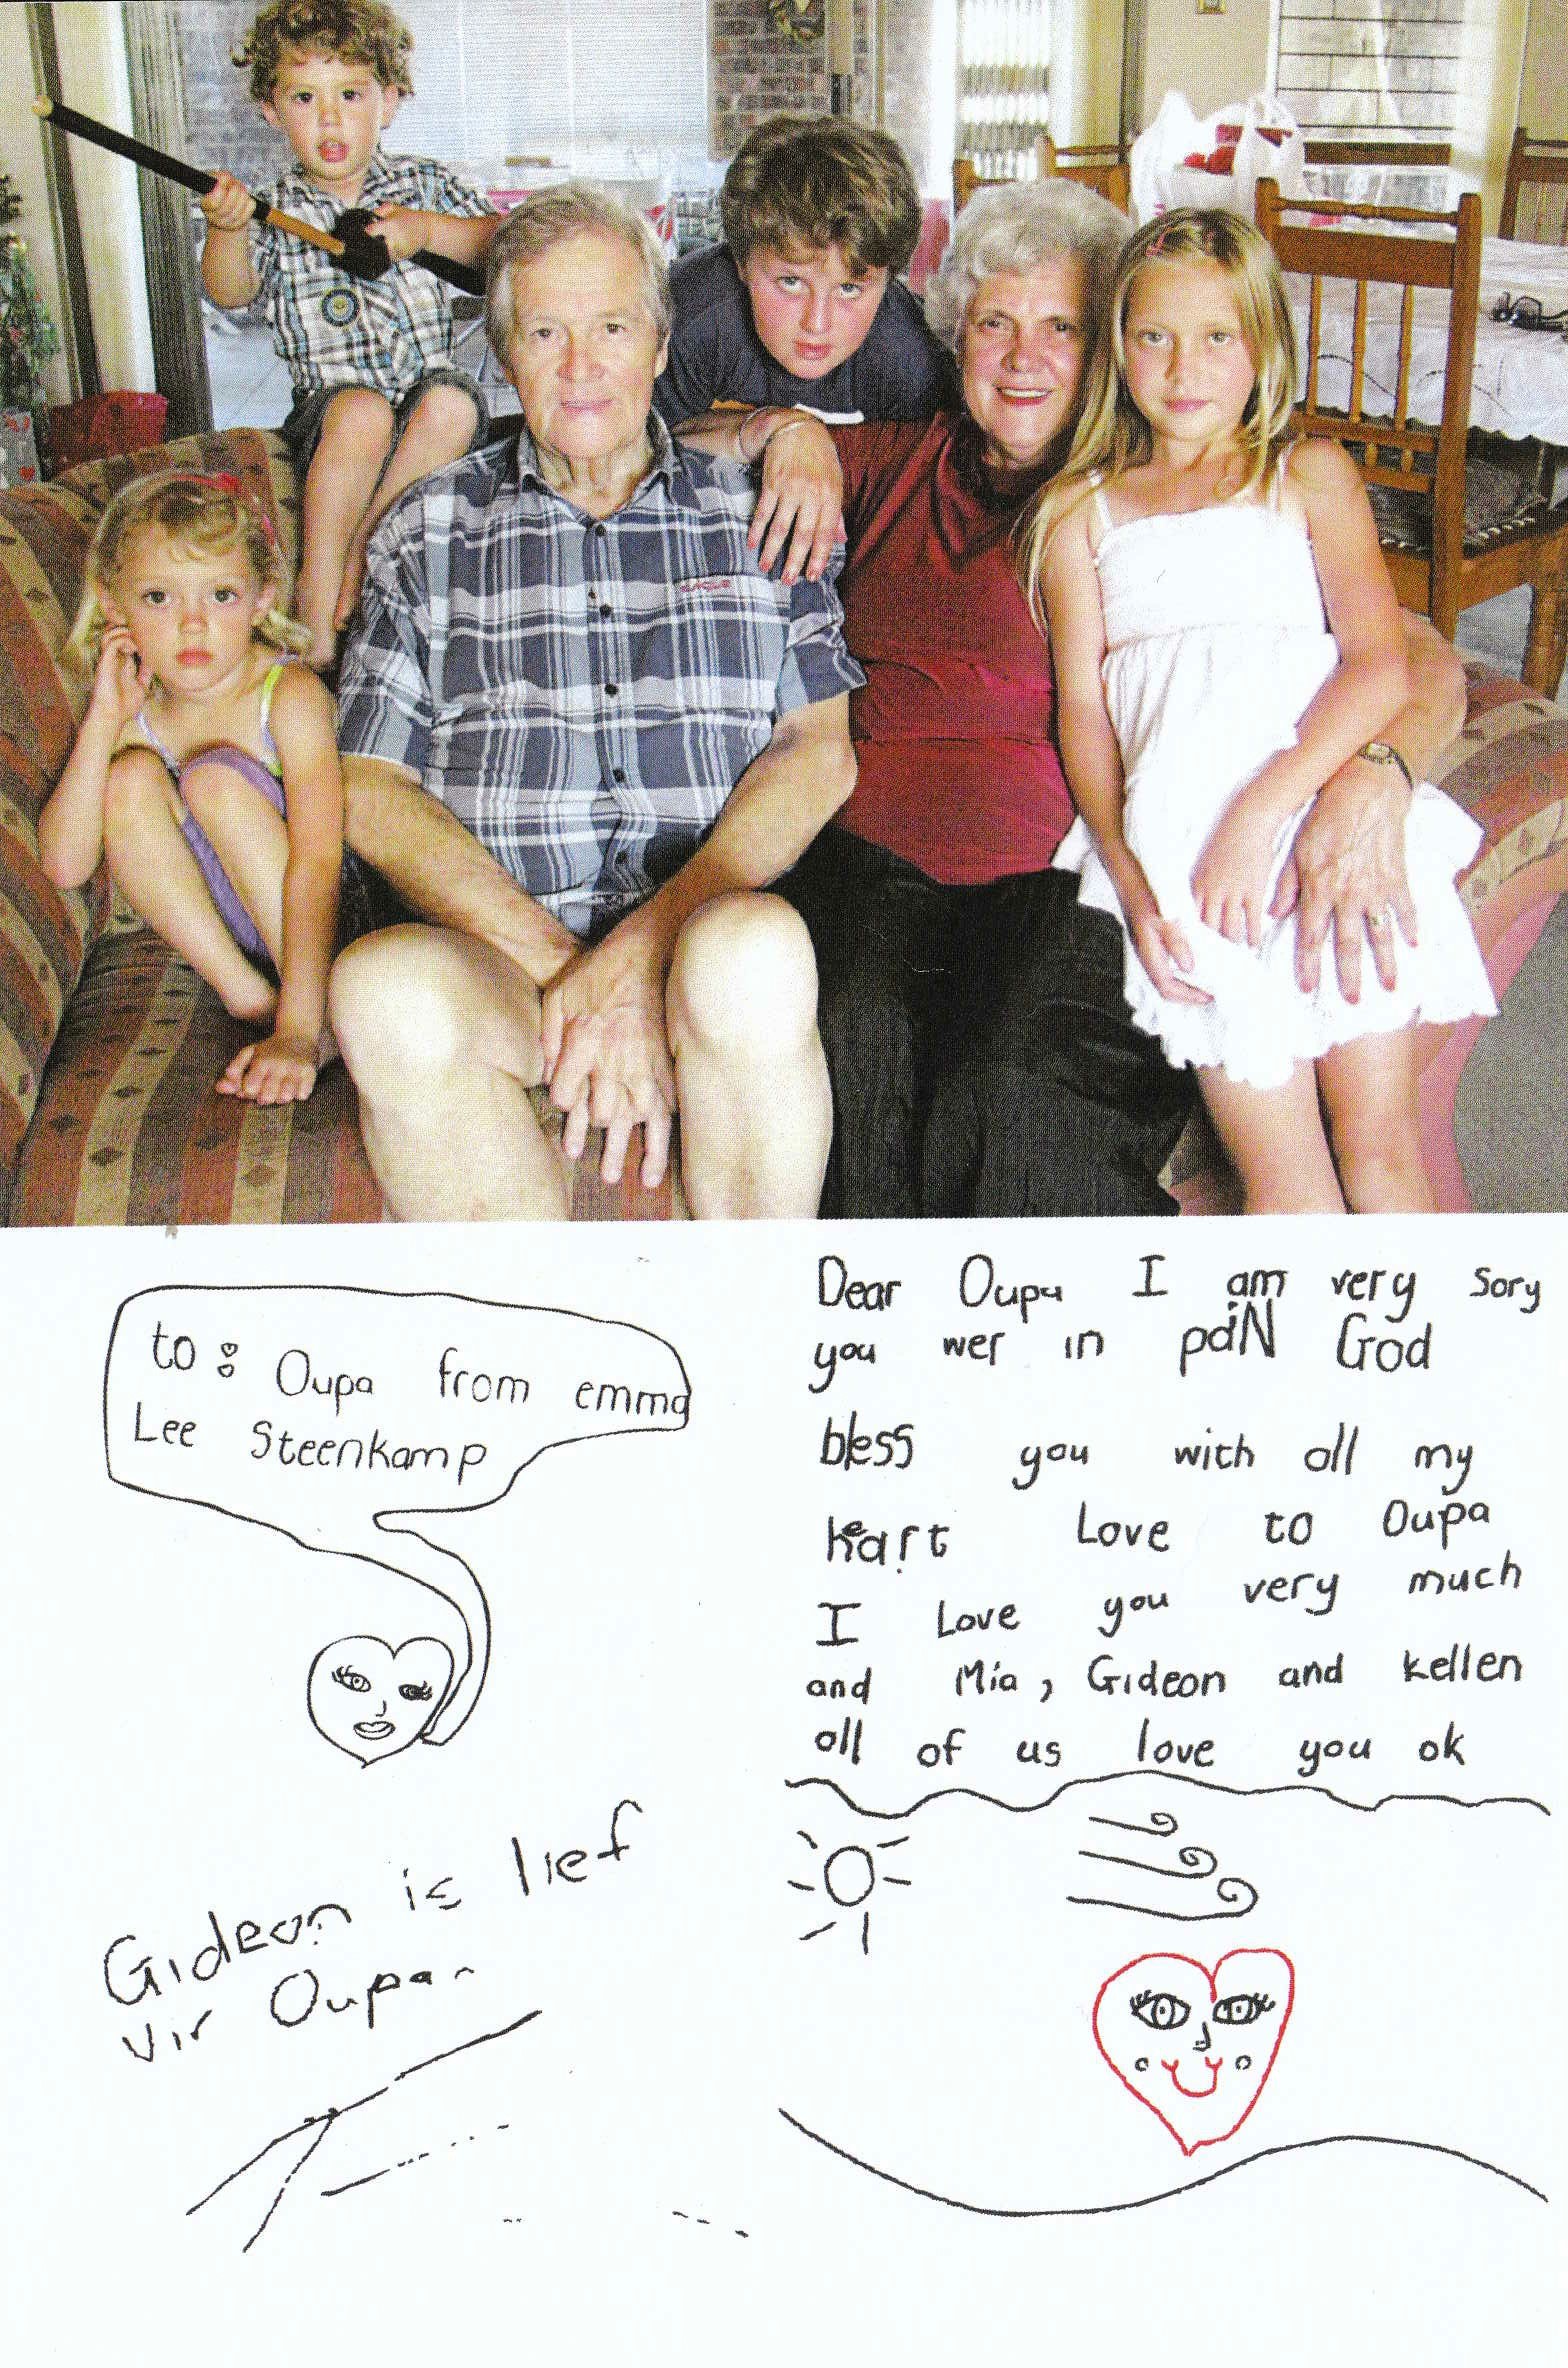 to: Oupa from emma
Lee Steenkamp
Dear Oupa I am very sory
you wer in paiN God
bless you with all my
heart Love to Oupa
I Love you very much
and Mia, Gideon and kellen
all of us love you ok
Gideon is lief
vir Oupa.